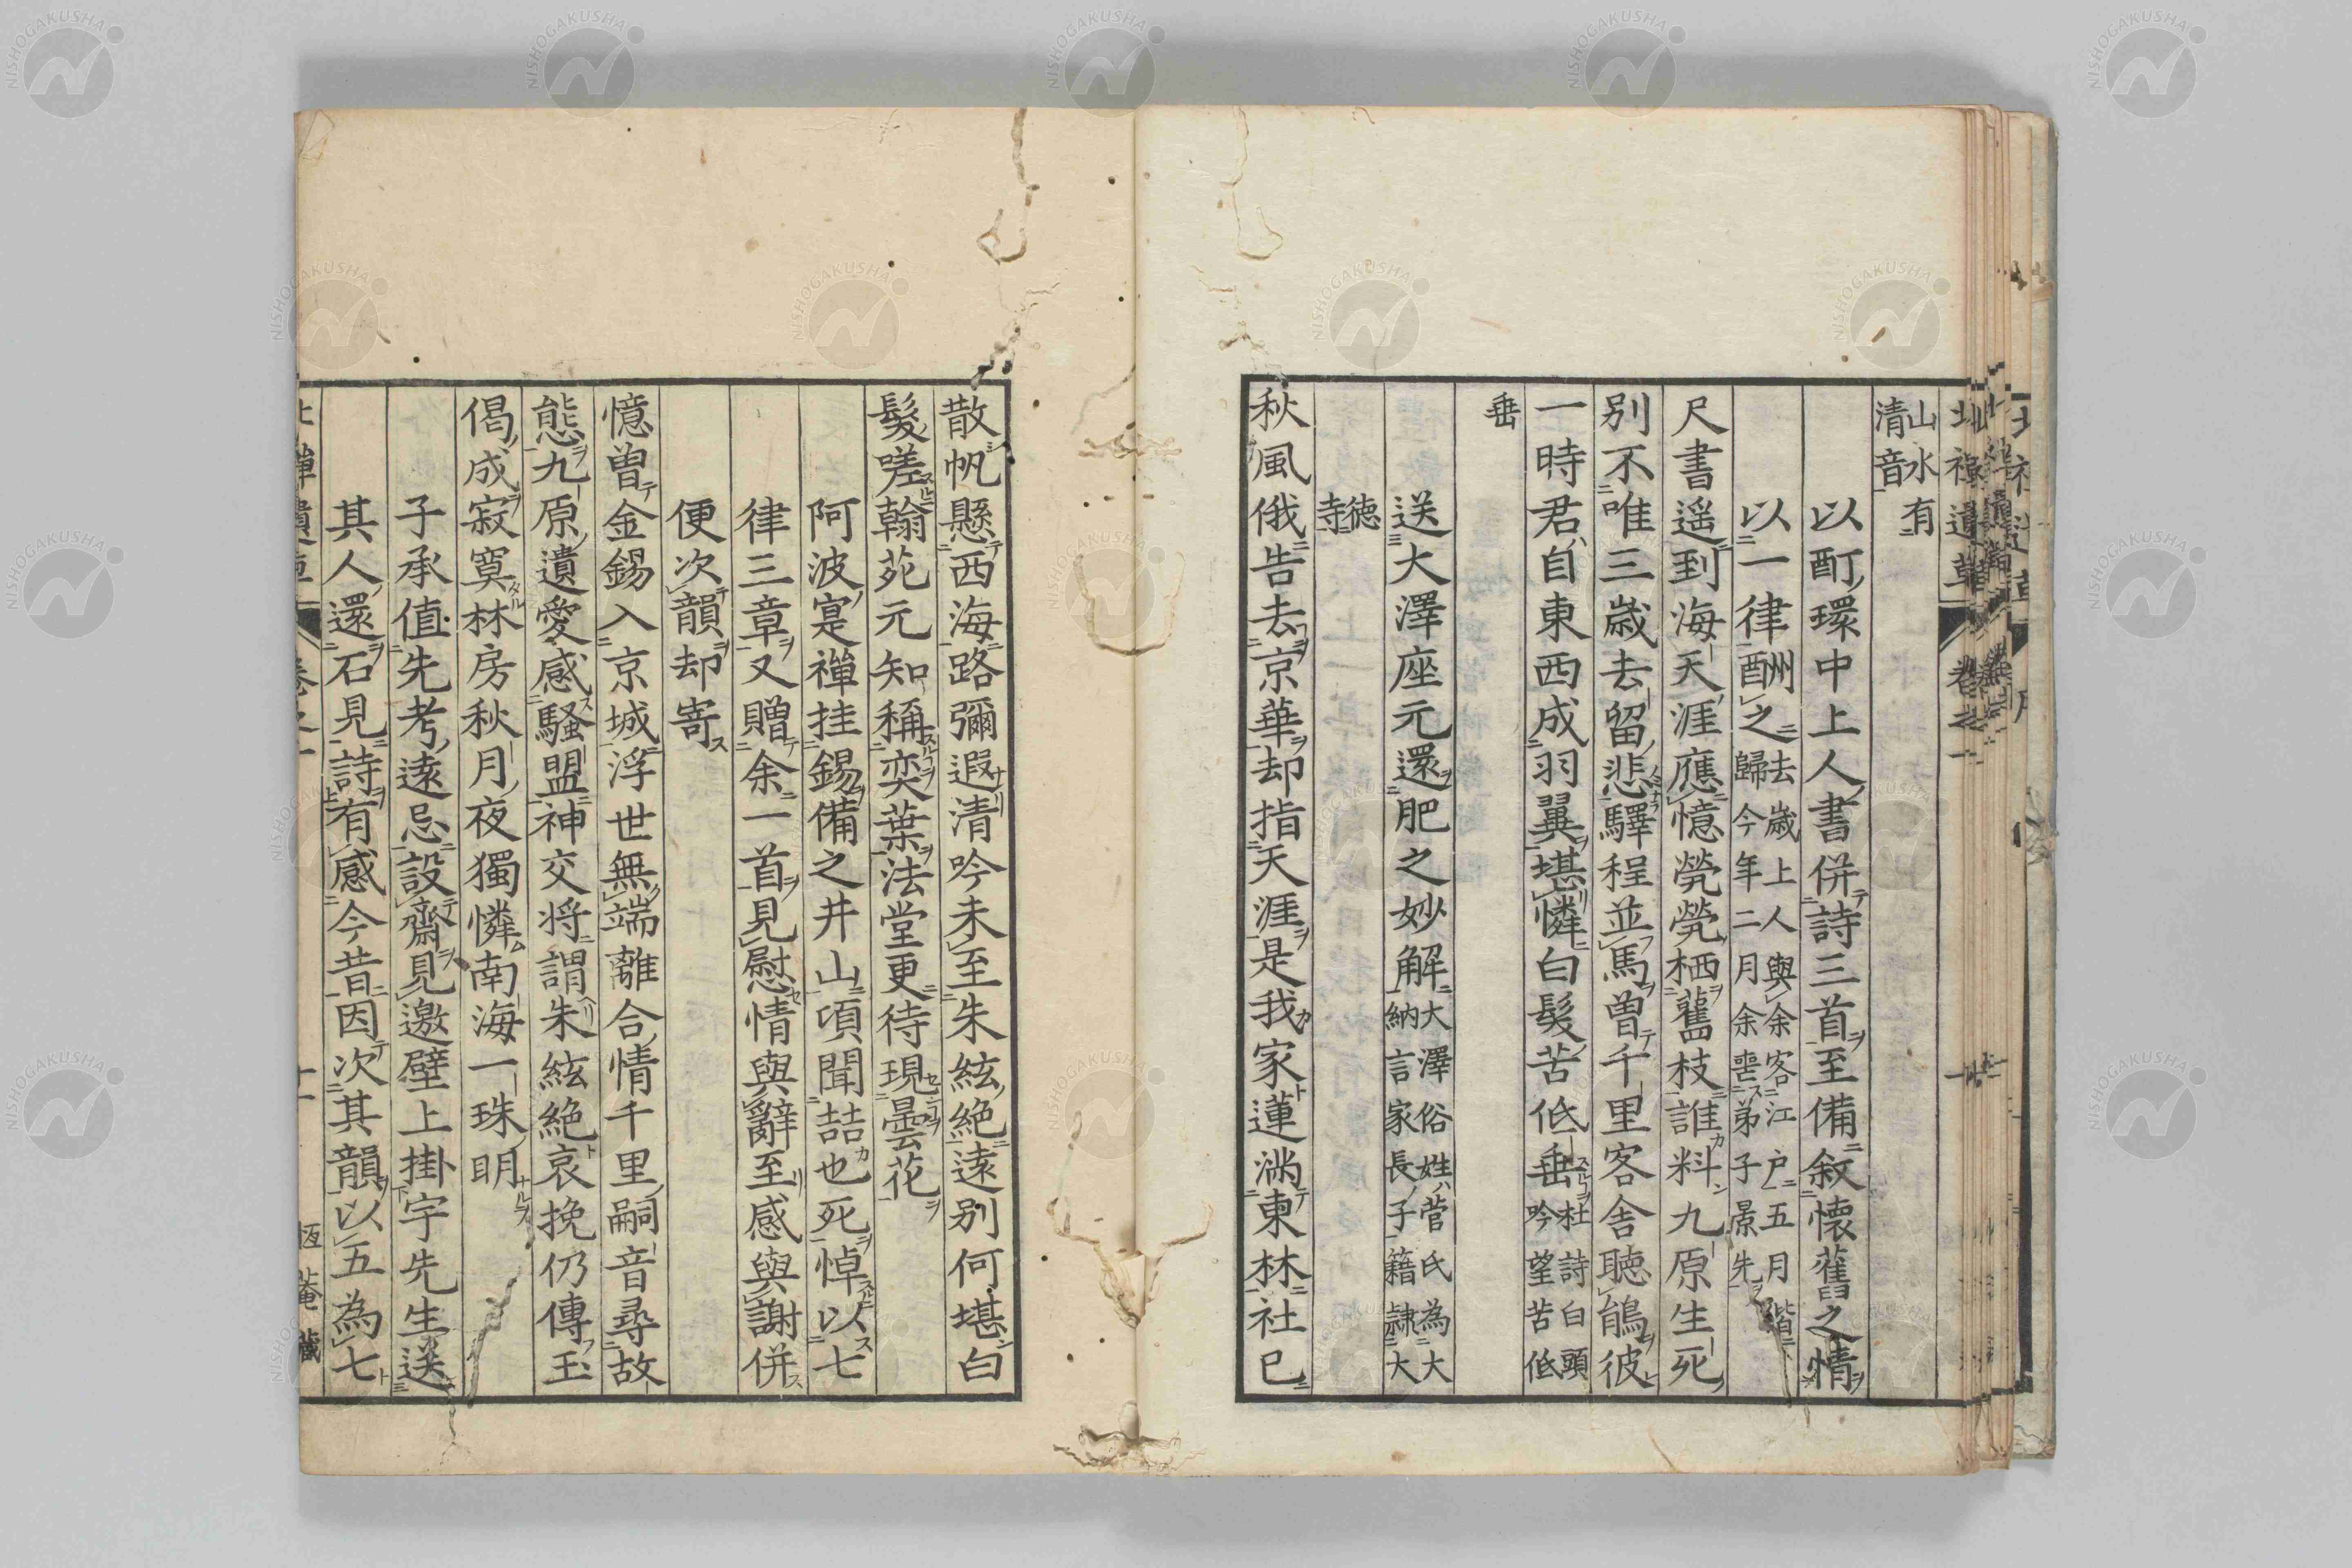 山水有
清音
以酊環中上人書併詩三首至備叙懐舊之情
以一律酬之去歳上人與余客江戸五月
歸今年二月余喪弟子景先
尺書遥到海天涯應憶煢煢栖舊枝誰料九原生死
別不唯三歳去留悲驛程並馬曽千里客舎聴鵑彼
一時君自東西成羽翼堪憐白髮苦低垂杜詩白頭
吟望苦低
垂
送大澤座元還肥之妙解大澤俗姓菅氏為大
納言家長子籍隷大
徳
寺
秋風俄告去京華却指天涯是我家蓮満東林社已
散帆懸西海路彌遐清吟未至朱絃絶遠別何堪白
髮嗟翰苑元知稱奕葉法堂更待現曇花
阿波寔禅挂錫備之井山頃聞喆也死悼以七
律三章又贈余一首見慰情與辭至感與謝併
便次韻却寄
憶曽金錫入京城浮世無端離合情千里嗣音尋故
態九原遺愛感騷盟神交将謂朱絃絶哀挽仍傳玉
偈成寂寞林房秋月夜獨憐南海一珠明
子承值先考遠忌設齋見邀壁上掛宇先生送
其人還石見詩有感今昔因次其韻以五為七
恆菴藏
NISHOGAKUSHA